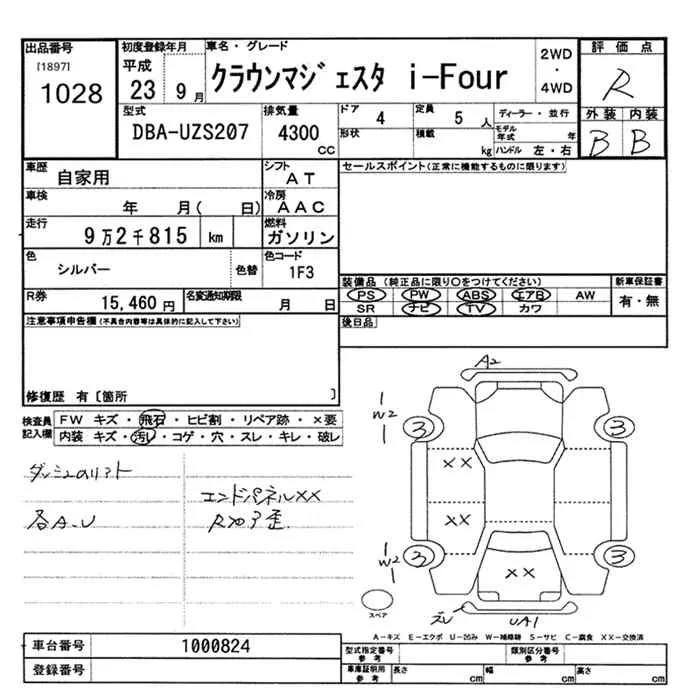 出品番号
[1897]
1028
初度登録年月
平成
23 9月
車名・グレード
クラウンマジェスタ i-Four
2WD
・
4WD
評価点
R
外装 内装
B B
型式
DBA-UZS207
排気量
4300
cc
ドア
4
定員
5 人
ディーラー・並行
形状
積載
kg
モデル年式 年
ハンドル 左・右
車歴
自家用
シフト
AT
車検
年 月( 日)
冷房
AAC
走行
9万2千815 km
燃料
ガソリン
色
シルバー
色替
色コード
1F3
R券
15,460 円
名変通知期限
月 日
セールスポイント(正常に機能するものに限ります)
装備品 (純正品に限り○をつけてください)
PS PW ABS エアB AW
SR ナビ TV カワ
新車保証書
有・無
後日品
注意事項申告欄(不具合内容等は具体的に記入して下さい)
修復歴 有〔箇所 〕
検査員
記入欄
FW キズ・飛石・ヒビ割・リペア跡・×要
内装 キズ・汚レ・コゲ・穴・スレ・キレ・破レ
各A.U
エンドパネルXX
A2
W2
3
3
XX
XX
W2
3
3
XX
ズレ
UA1
スペア
A-キズ E-エクボ U-凹み W-補修跡 S-サビ C-腐食 XX-交換済
車台番号
1000824
登録番号
型式指定番号
参考
類別区分番号
参考
車庫証明用
参考
長さ
cm
幅
cm
高さ
cm